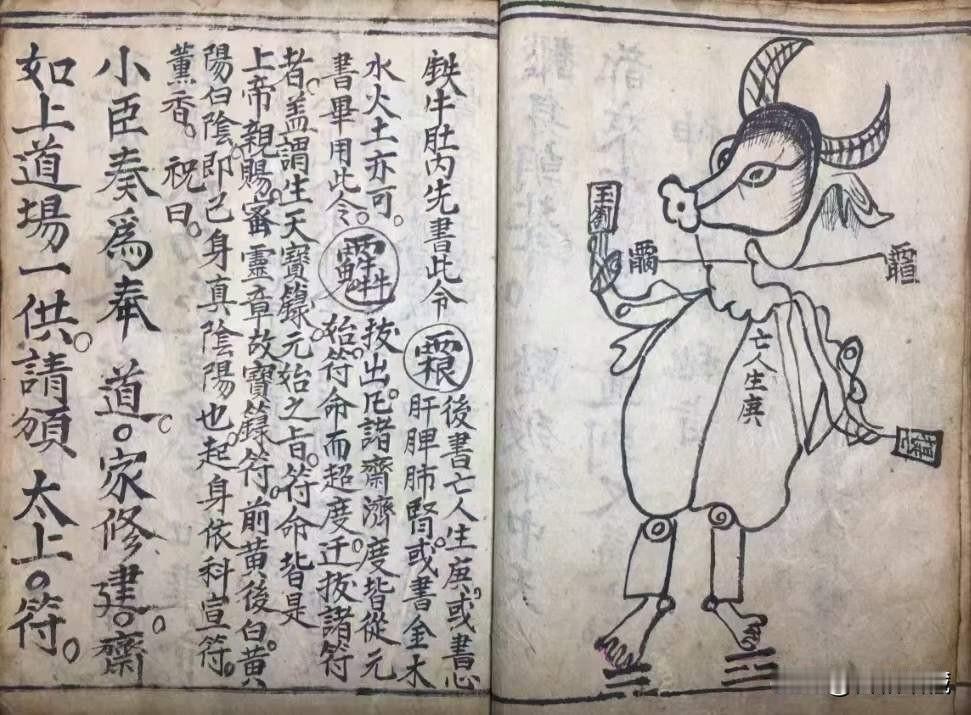 鉄牛肚内先書此令
後書亡人生庚。或書心
肝脾肺腎。或書金木
水火土亦可。
書畢用此令。
拔出。凡諸齋濟度皆從元
始。符命而超度迁拔諸符
者。蓋謂生天寶籙。元始之旨。符命皆是
上帝親賜。靈章故寶籙符。前黄後白。黄
陽白陰。即己身真陰陽也。起身依科宣符。
薰香。祝曰。
小臣奏爲奉 道。家修建。齋
如上道場一供。請頒 太上。符。
亡人生庚